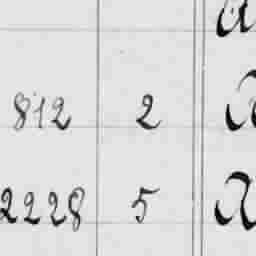 812 2
2228 5